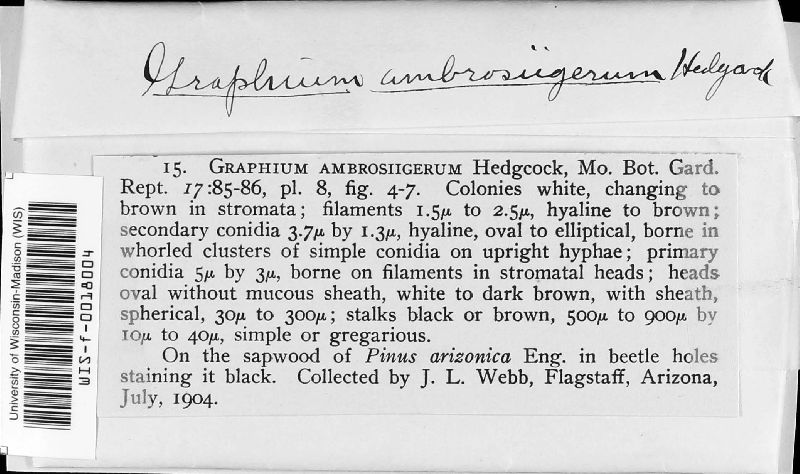 Graphium ambrosiigerum Hedgcock
15. GRAPHIUM AMBROSIIGERUM Hedgcock, Mo. Bot. Gard.
Rept. 17:85-86, pl. 8, fig. 4-7. Colonies white, changing to
brown in stromata; filaments 1.5μ to 2.5μ, hyaline to brown;
secondary conidia 3.7μ by 1.3μ, hyaline, oval to elliptical, borne in
whorled clusters of simple conidia on upright hyphae; primary
conidia 5μ by 3μ, borne on filaments in stromatal heads; heads
oval without mucous sheath, white to dark brown, with sheath,
spherical, 30μ to 300μ; stalks black or brown, 500μ to 900μ by
10μ to 40μ, simple or gregarious.
On the sapwood of Pinus arizonica Eng. in beetle holes
staining it black. Collected by J. L. Webb, Flagstaff, Arizona,
July, 1904.
University of Wisconsin-Madison (WIS)
WIS-f-0018004